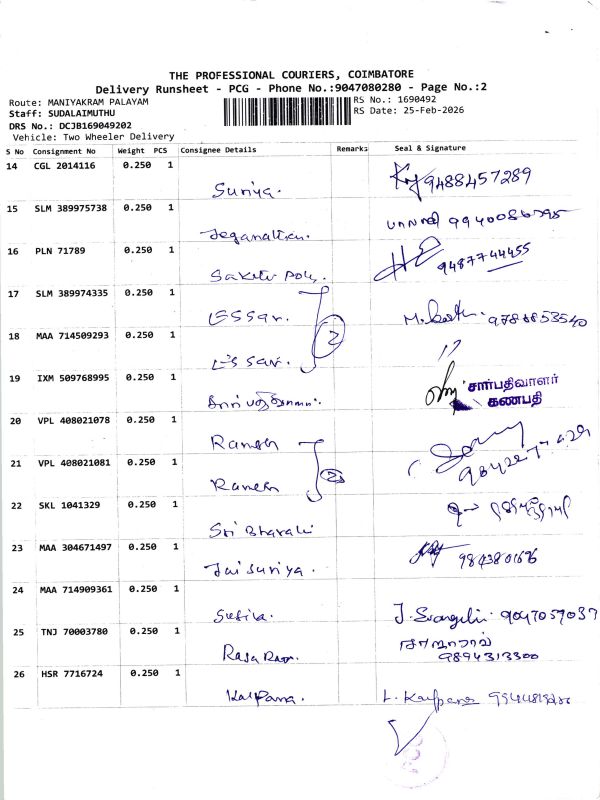 THE PROFESSIONAL COURIERS, COIMBATORE
Delivery Runsheet - PCG - Phone No.:9047080280 - Page No.:2
Route: MANIYAKRAM PALAYAM
RS No.: 1690492
Staff: SUDALAIMUTHU
RS Date: 25-Feb-2026
DRS No.: DCJB169049202
Vehicle: Two Wheeler Delivery
S No Consignment No Weight PCS Consignee Details Remarks Seal & Signature
14 CGL 2014116 0.250 1
Suriya. 9488457289
15 SLM 389975738 0.250 1
Jeganathan.
16 PLN 71789 0.250 1
Sakthi 9487744455
17 SLM 389974335 0.250 1
Essar. 9788853540
18 MAA 714509293 0.250 1
Essar. 2
19 IXM 509768995 0.250 1
சார்பதிவாளர்
கணபதி
20 VPL 408021078 0.250 1
Ramesh
21 VPL 408021081 0.250 1
Ramesh 2
22 SKL 1041329 0.250 1
Sri Bharathi
23 MAA 304671497 0.250 1
Jai Suriya.
24 MAA 714909361 0.250 1
Susila. J. Evangelin 9047057037
25 TNJ 70003780 0.250 1
Raja Ram. 9894313300
26 HSR 7716724 0.250 1
Kalpana. L. Kalpana